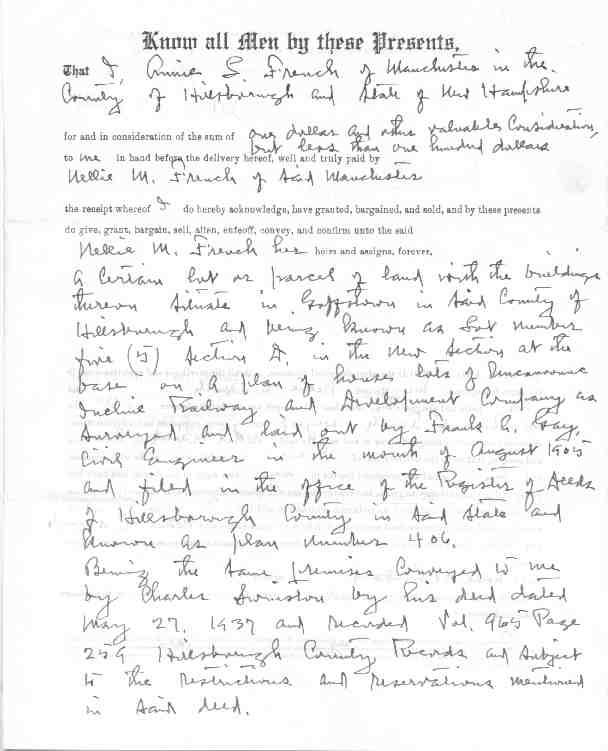 Know all Men by these Presents,
That I, Annie S. French of Manchester in the
County of Hillsborough and State of New Hampshire
for and in consideration of the sum of one dollar and other valuables Consideration,
but less than one hundred dollars
to me in hand before the delivery hereof, well and truly paid by
Nellie M. French of said Manchester
the receipt whereof I do hereby acknowledge, have granted, bargained, and sold, and by these presents
do give, grant, bargain, sell, alien, enfeoff, convey, and confirm unto the said
Nellie M. French her heirs and assigns, forever,
a Certain lot or parcel of land with the buildings
thereon situate in Goffstown in said County of
Hillsborough and being known as Lot number
five (5) Section in the new section at the
base on a plan of houses lots of Uncanoonuc
Incline Railway and Development Company as
surveyed and laid out by Frank A. Gay,
Civil Engineer in the month of August 1905
and filed in the office of the Register of Deeds
of Hillsborough County in said State and
known as plan number 406.
Being the same premises Conveyed to me
by Charles by his deed dated
May 27, 1937 and recorded Vol. 965 Page
259 Hillsborough County Records and subject
to the restrictions and reservations mentioned
in said deed.